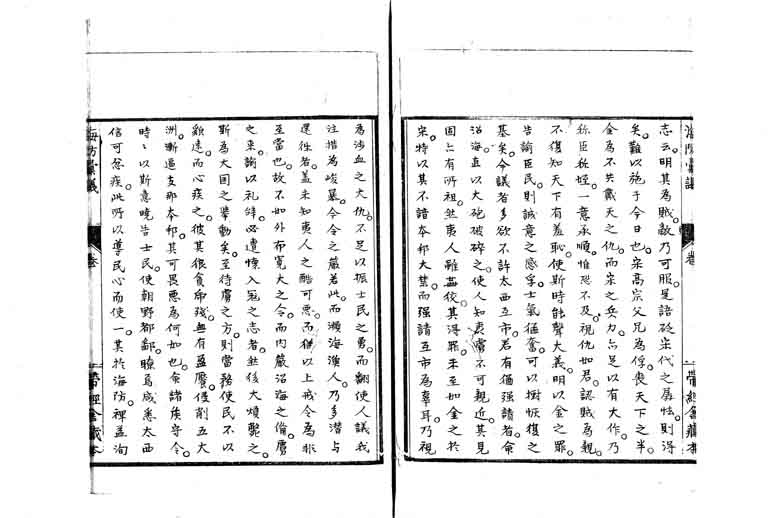 海防彙議
卷
帶經金藏本
志云明其為賊敵乃可服是語砭宋代之孱怯則得
矣難以施于今日也宋高宗父兄為俘喪天下之半
金為不共戴天之仇而宋之兵力㒰足以有大作乃
称臣称姪一意承順惟恐不及視仇如君認賊為親
不復知天下有羞恥使斯時能聲大義明以金之罪
告諭臣民則誠意之感孚士氣猛奮可以樹恢復之
基矣今議者多欲不許太西互市若有偪强請者命
沿海直以大砲破碎之使人知夷當不可親近其見
固有所祖然夷人雖姦狡其得罪未至如金之於
宋特以其不諳本邦大禁而强請互市為辜耳乃視
為涉血之大仇不足以振士民之勇而翻使人議我
注措為峻暴今令之嚴若此而濒海漁人乃多潛与
還徃者蓋未知夷人之酷可惡而惟以上戒令為非
至當也故不如外布寬大之令而内嚴沿海之備虜
之来諭以礼辞必遵慄入冦之志者然後大煩斃之
斯為大国之擧動矣至待虜之方則當務使民不以
雖遠而心疾之彼其很貪帝殘無有盈饜侵削五大
洲漸逼支那本邦其可畏惡為何如也命諸侯守令
時々以斯意曉告士民使朝野都鄙瞭為咸悉太西
信可忿疾此所以導民心而使一其於海防裨益洵
海防彙議
卷
帶經金藏本